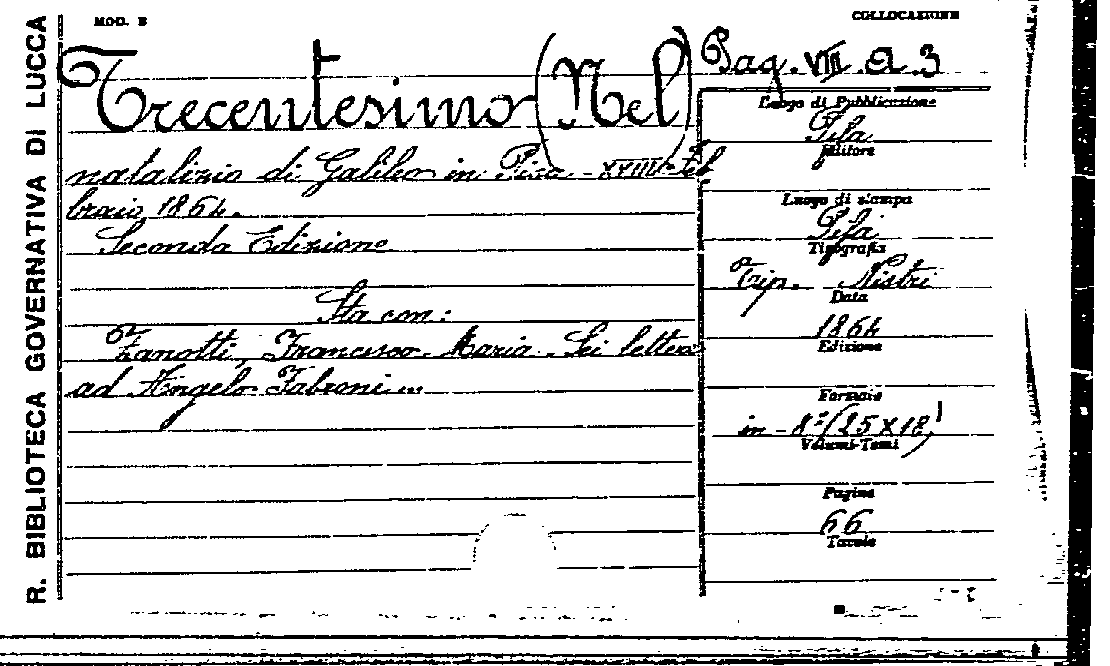 R. BIBLIOTECA GOVERNATIVA DI LUCCA
MOD. B
COLLOCAZIONE
Pag. VIII. a. 3
Trecentesimo (Nel)
natalizio di Galileo in Pisa - XVIII Feb
braio 1864.
Seconda Edizione
Sta con:
Zanotti, Francesco Maria. Sei lettere
ad Angelo Fabroni ...
Luogo di Pubblicazione
Pisa
Editore
Luogo di stampa
Pisa
Tipografia
Tip. Nistri
Data
1864
Edizione
Formato
in - 8º (25 x 18)
Volumi-Tomi
Pagine
66
Tavole